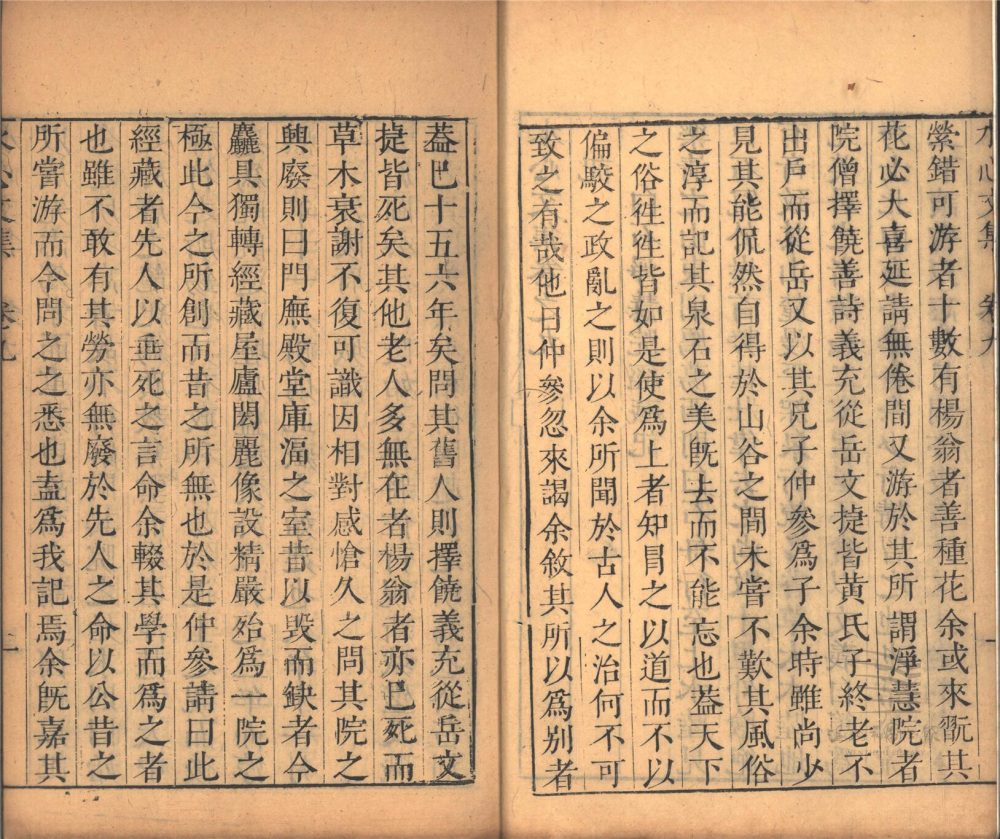 水心文集 卷九
縈錯可游者十數有楊翁者善種花余或來翫其
花必大喜延請無倦間又游於其所謂淨慧院者
院僧擇饒善詩義充從岳文捷皆黃氏子終老不
出戶而從岳又以其兄子仲參爲子余時雖尚少
見其能侃然自得於山谷之間未嘗不歎其風俗
之淳而記其泉石之美旣去而不能忘也葢天下
之俗徃徃皆如是使爲上者知冒之以道而不以
偏駮之政亂之則以余所聞於古人之治何不可
致之有哉他日仲參忽來謁余敘其所以爲別者
葢巳十五六年矣問其舊人則擇饒義充從岳文
捷皆死矣其他老人多無在者楊翁者亦巳死而
草木衰謝不復可識因相對感愴久之問其院之
興廢則曰門廡殿堂庫湢之室昔以毀而缺者今
麤具獨轉經藏屋廬閎麗像設精嚴殆爲一院之
極此今之所創而昔之所無也於是仲參請曰此
經藏者先人以垂死之言命余輟其學而爲之者
也雖不敢有其勞亦無廢於先人之命以公昔之
所嘗游而今問之之悉也盍爲我記焉余旣嘉其
水心文集 卷九